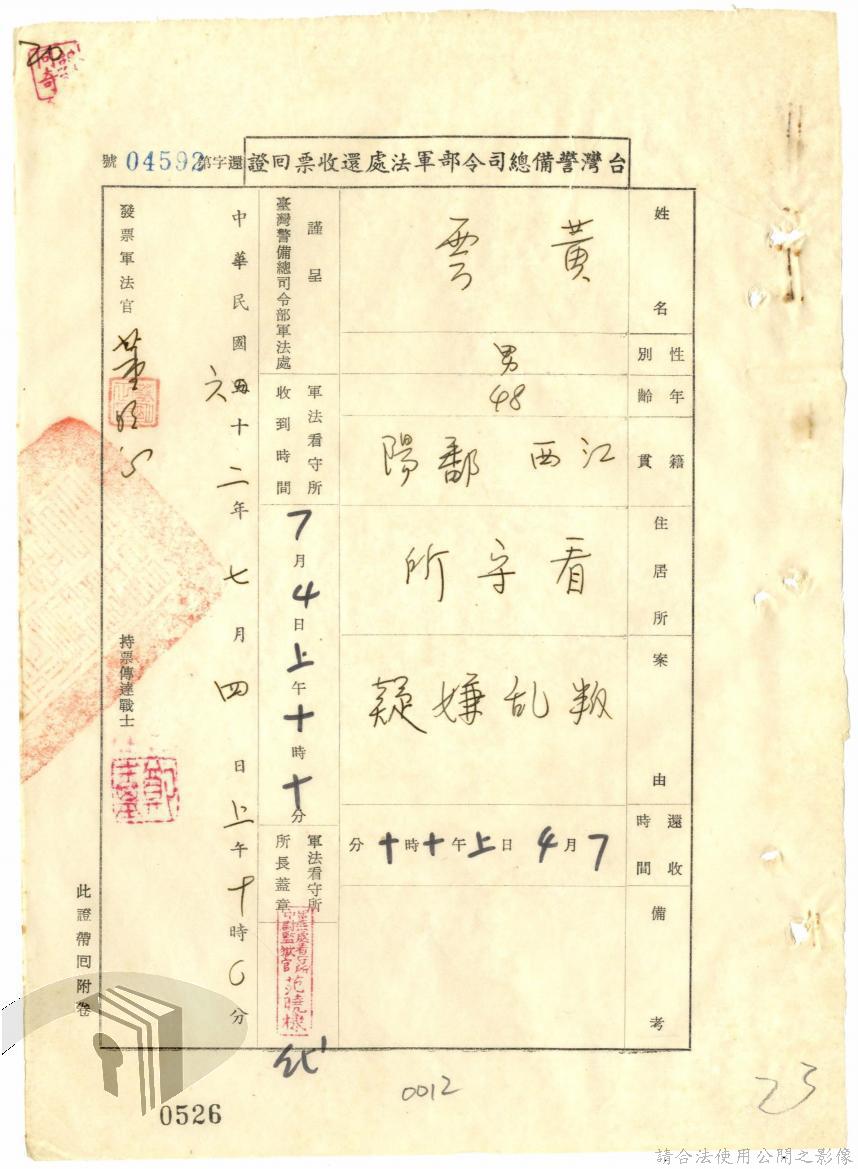 台灣警備總司令部軍法處還收票回證
還字第04592號
姓名
黃雲
性別
男
年齡
48
籍貫
江西鄱陽
住居所
看守所
案由
叛乱嫌疑
還收時間
7月4日上午十時十分
備考
謹呈
臺灣警備總司令部軍法處
軍法看守所
收到時間
7月4日上午十時十分
軍法看守所
所長蓋章
范曉棣
代
中華民國六十二年七月四日上午十時0分
發票軍法官
持票傳達戰士
此證帶回附卷
0526
0012
23
20
請合法使用公開之影像